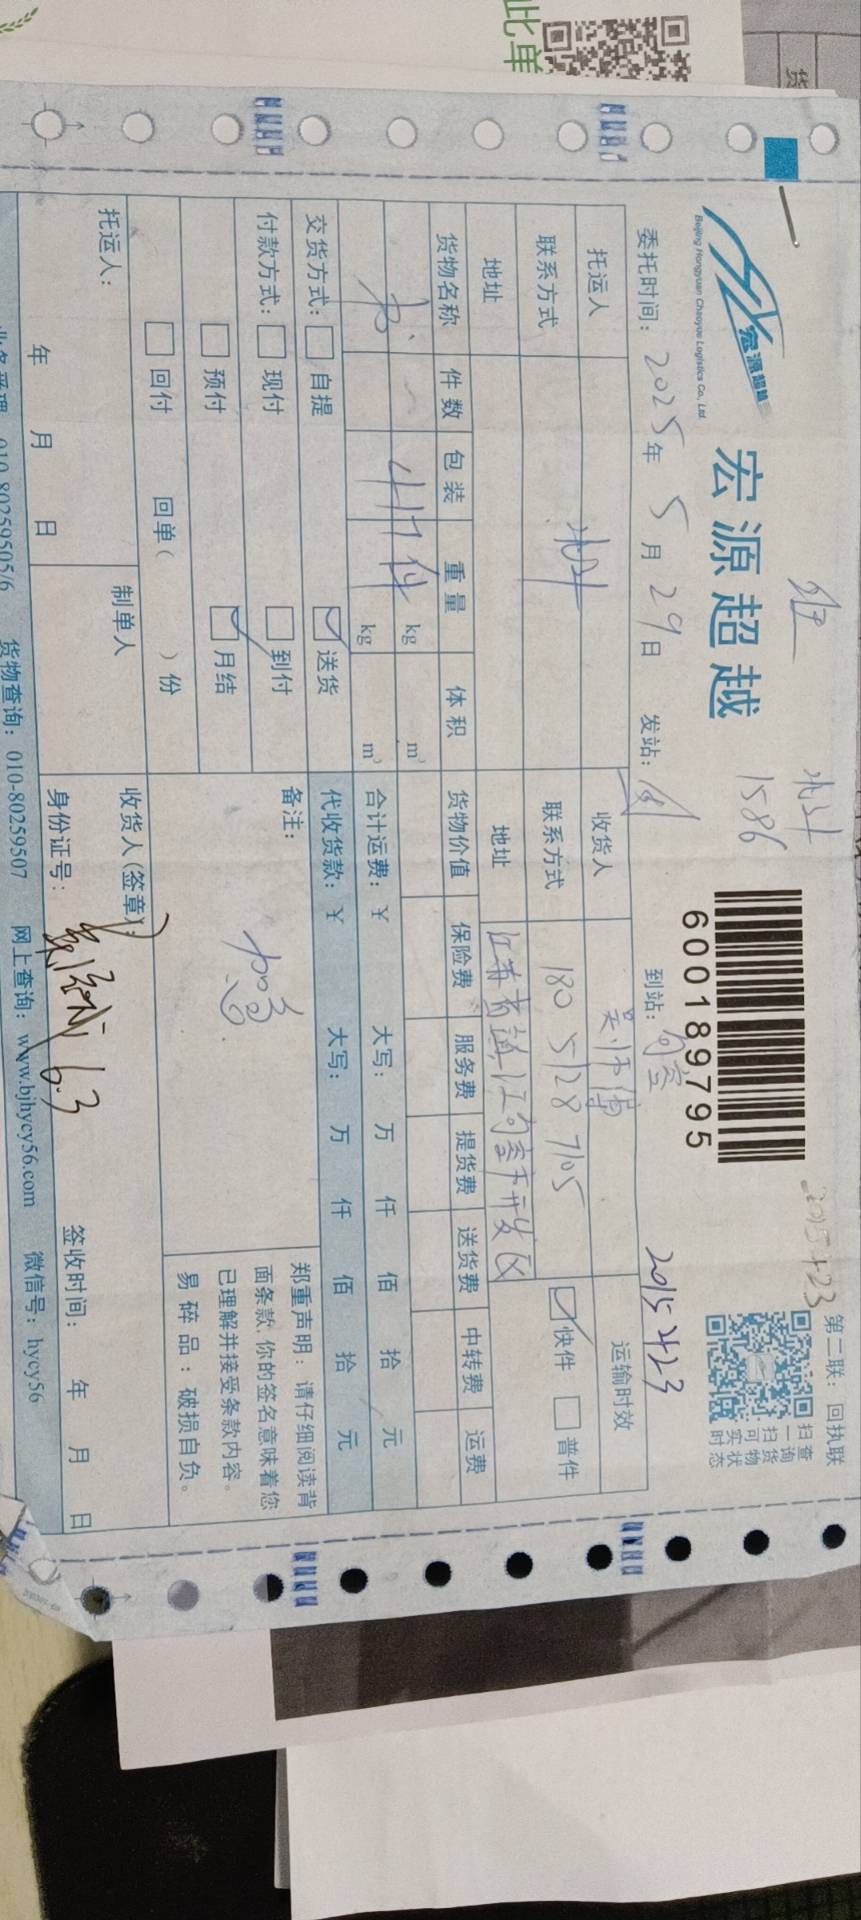 此单
货
第二联：回执联
宏源超越
Beijing Hongyuan Chaoyue Logistics Co., Ltd.
宏源超越
1586
6001897­95
2015423
扫一扫可实时
查询货物状态
委托时间：2025年5月29日 发站： 到站：句容
2015423
托运人 收货人 吴师傅 运输时效
联系方式 联系方式 180 5128 7105 快件 普件
地址 地址 江苏省镇江句容市开发区
货物名称 件数 包装 重量 体积 货物价值 保险费 服务费 提货费 送货费 中转费 运费
417件 kg m³
kg m³ 合计运费：￥ 大写： 万 仟 佰 拾 元
交货方式： 自提 送货 代收货款：￥ 大写： 万 仟 佰 拾 元
付款方式： 现付 到付 备注： 加急
预付 月结
回付 回单（ ）份
郑重声明：请仔细阅读背
面条款,你的签名意味着您
已理解并接受条款内容。
易碎品：破损自负。
托运人： 制单人 收货人(签章)：
年 月 日 身份证号： 6.3 签收时间： 年 月 日
010-80259505/6 货物查询：010-80259507 网上查询：www.bjhycy56.com 微信号：hycy56